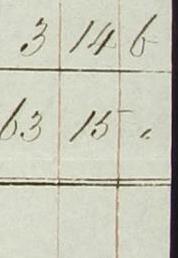 3 14 6
63 15 "